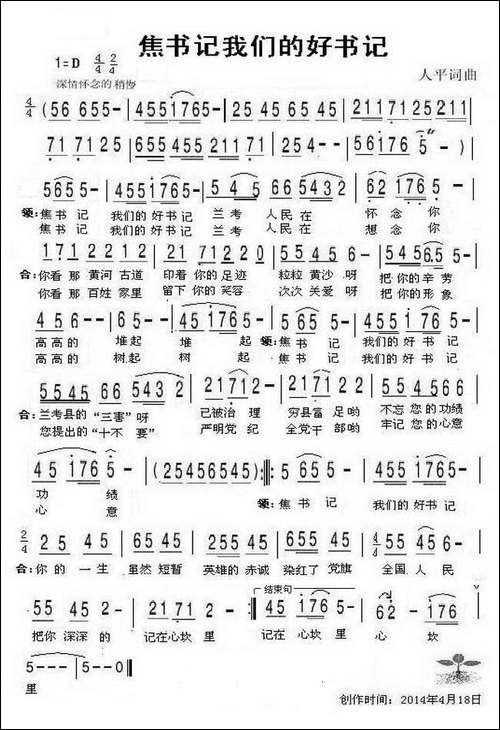 焦书记我们的好书记
1=D 4/4 2/4
深情怀念的 稍慢
人平词曲
4/4 (56 655- | 4551765- | 25 45 65 45 | 2117125211 |
71 7121 | 655 455 211 71 | 2- | 56176 5 -) |
5655- | 4551765- | 5 4 5 6665432 | 62 176 5- |
领:焦书 记 我们的 好书记 兰考 人民在 怀 念 你
焦书 记 我们的 好书记 兰考 人民在 想 念 你
171 2212 | 21 71220 | 555 432 | 545 65 5 |
合:你看 那 黄河 古道 印着 你的 足迹 粒粒 黄沙 呀 把 你的 辛 劳
你看 那 百姓 家里 留下 你的 笑容 次次 关爱 呀 把 你的 形 象
4 56- | 45 176 5- | 5 655 - | 4551765- |
高高的 堆起 堆 起 领:焦 书记 我们的 好 书记
高高的 树起 树 起 焦 书记 我们的 好 书记
5545 66 5432 | 21712- | 71 122- | 55 4566 |
合:兰考县的 “三害”呀 已被治 理 穷县富 足哟 不忘 您的 功绩
您提出的 “十不 要” 严明党 纪 全党干 部哟 牢记 您的 心意
45 176 5- | (25456545):‖: 5 655- | 4551765- |
功 绩 领:焦 书记 我们的 好书记
心 意
2/4 25 45 | 655 45 | 655 45 | 655 45 | 4/4 2176 5- |
合:你的 一生 虽然 短暂 英雄的 赤诚 染红了 党旗 全国 人 民
55 45 2- | 21712- :‖ 结束句 45 176 5- | 62 - - 176 |
把你 深深 的 记在心坎 里 记在 心坎 里 心 坎
5--- | 5--0 ‖
里
创作时间：2014年4月18日